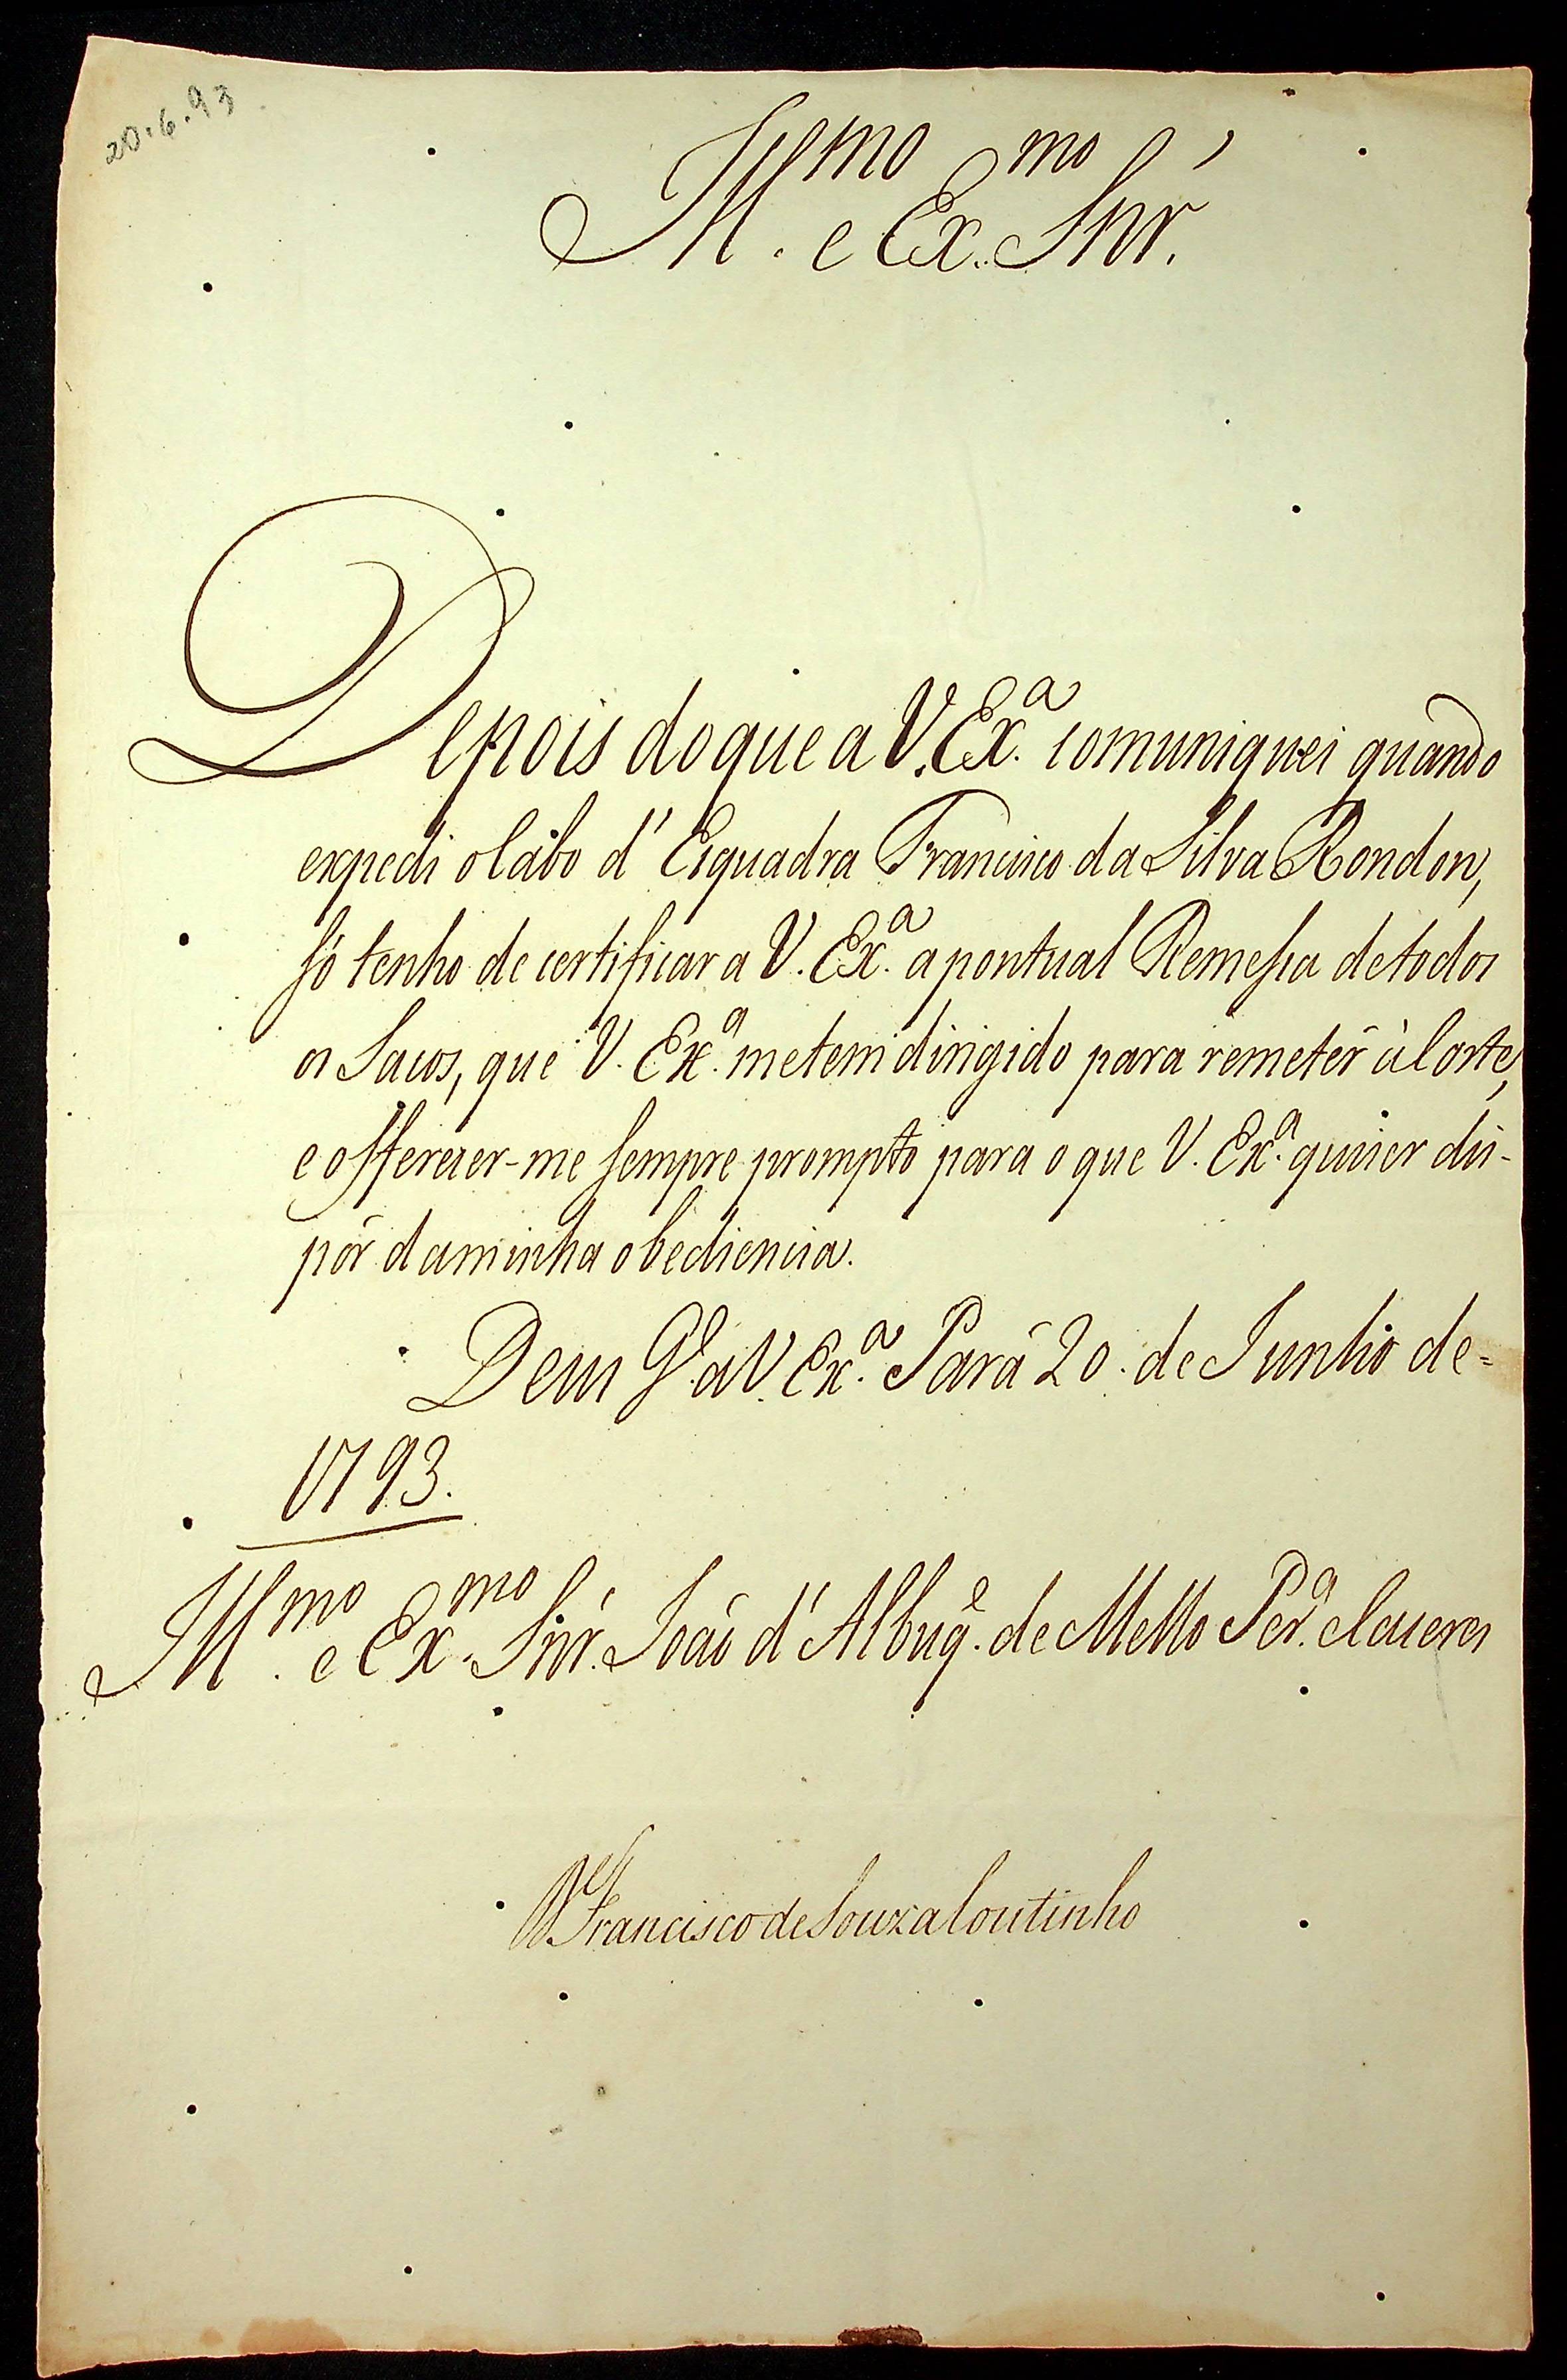 20.6.93
Ill.mo e Ex.mo Snr.
Depois do que a V. Ex.a comuniquei quando
expedi o Cabo d' Esquadra Francisco da Silva Rondon,
só tenho de certificar a V. Ex.a a pontual Remessa de todos
os Sacos, que V. Ex.a me tem dirigido para remeter à Corte,
e offerecer-me sempre prompto para o que V. Ex.a quiser dis-
pôr da minha obediencia.
Deus G.e a V. Ex.a Pará 20. de Junho de=
1793.
Ill.mo e Ex.mo Snr. João d' Albuq.e de Mello Per.a e Caceres
D. Francisco de Souza Coutinho